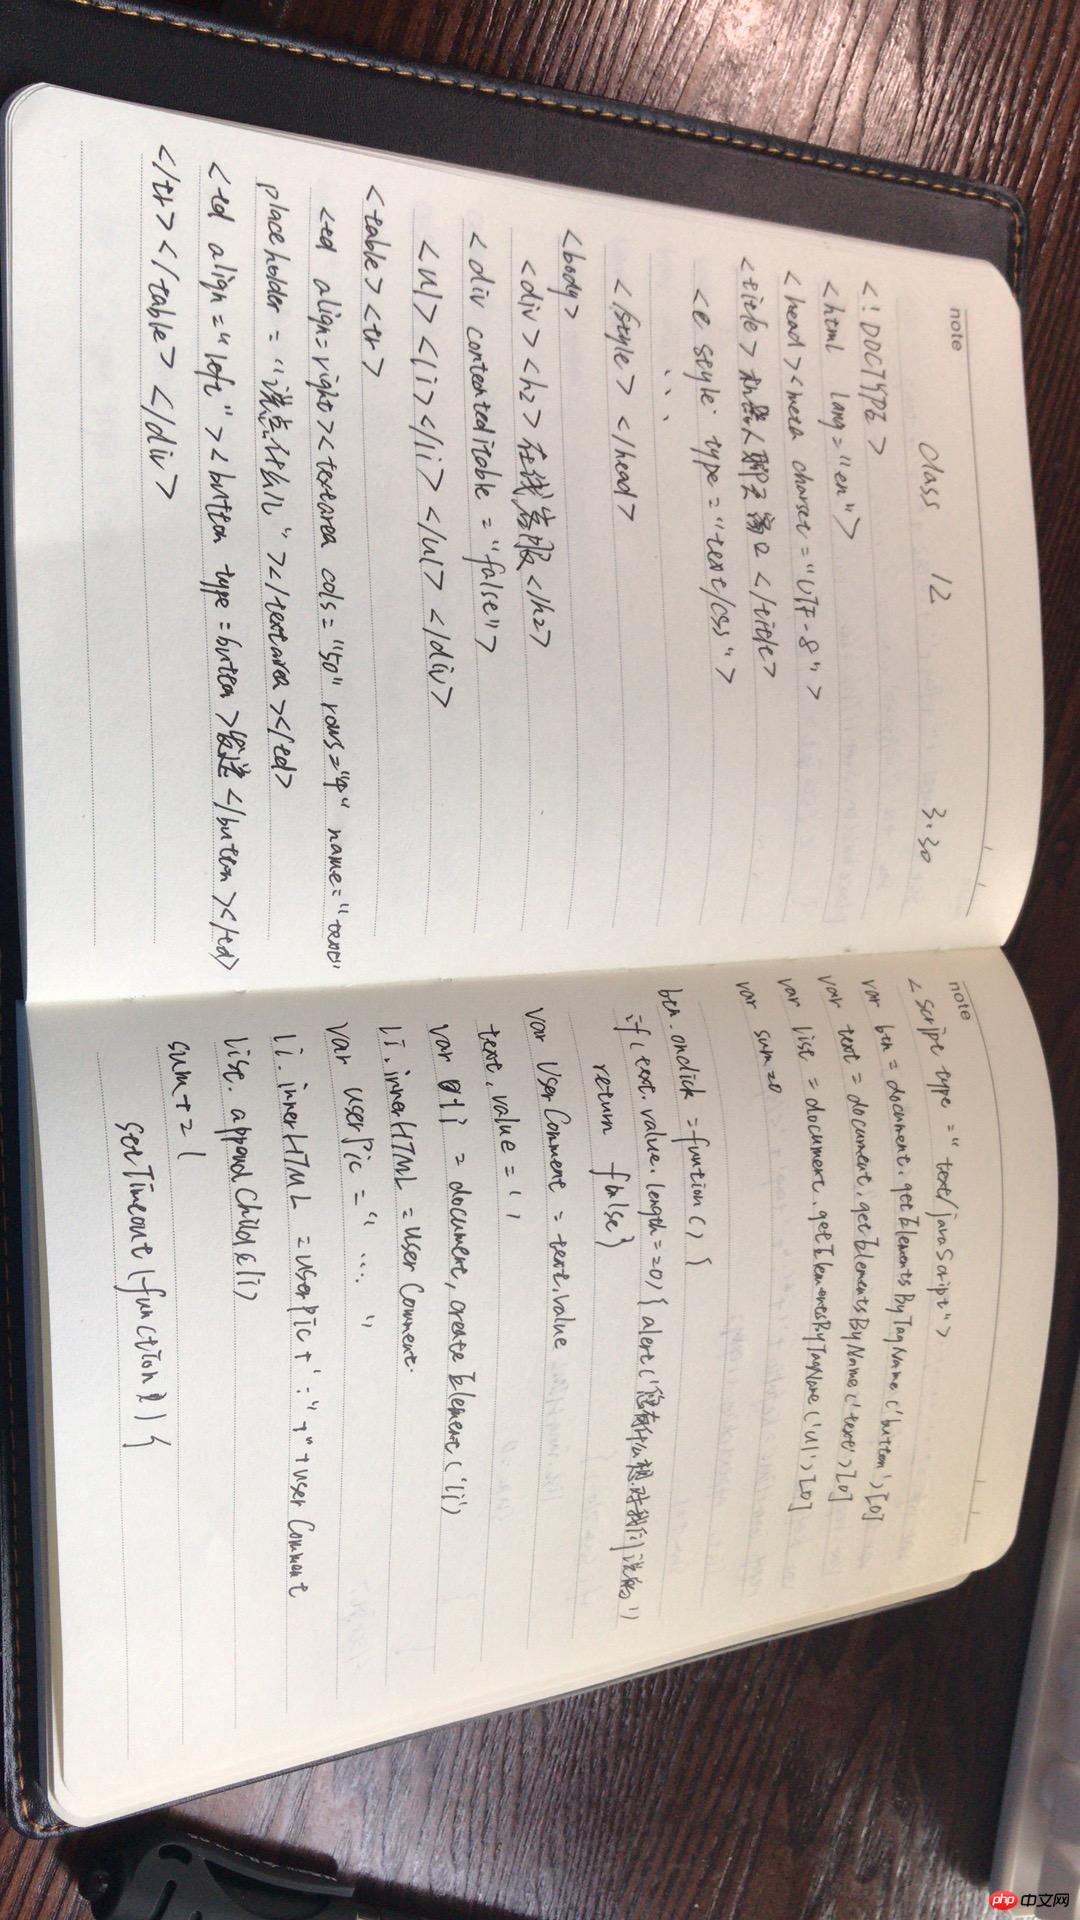 note
class 12 3.30
<!DOCTYPE>
<html lang="en">
<head><meta charset="UTF-8">
<title>和客人聊天窗口</title>
<style type="text/css">
...
</style></head>
<body>
<div><h2>在线客服</h2>
<div contenteditable="false">
<ul><li></li></ul></div>
<table><tr>
<td align=right><textarea cols="50" rows="4" name="text"
placeholder="说点什么儿"></textarea></td>
<td align="left"><button type=button>发送</button></td>
</tr></table></div>
note
<script type="text/javaScript">
var btn=document.getElementsByTagName('button')[0]
var text=document.getElementsByName('text')[0]
var list=document.getElementsByTagName('ul')[0]
var sum=0
btn.onclick=funtion(){
if(text.value.length==0){alert('您有什么想对我们说的')
return false}
var UserComment=text.value
text.value=''
var li=document.createElement('li')
li.innerHTML=userComment.
var userPic="...."
li.innerHTML=userPic+':"+"+userComment
list.appendChild(li)
sum+=1
setTimeout(function){
php 中文网